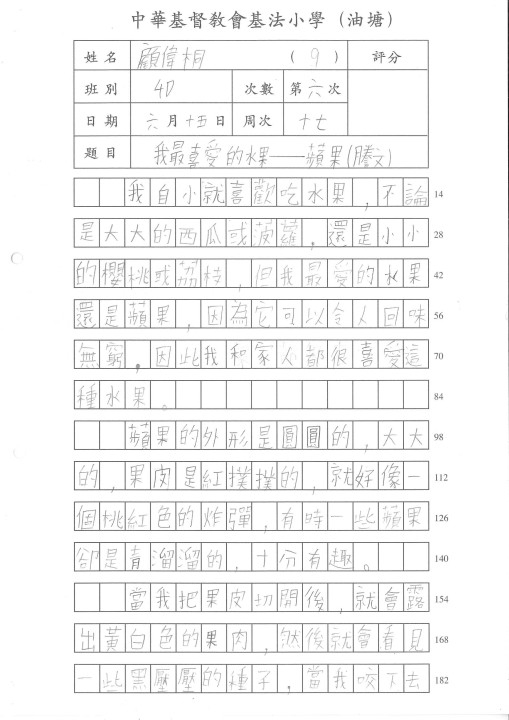 中華基督教會基法小學（油塘）
姓名 顧偉桐 （9） 評分
班別 4D 次數 第六次
日期 六月十五日 周次 十七
題目 我最喜愛的水果——蘋果(謄文)
我自小就喜歡吃水果，不論 14
是大大的西瓜或菠蘿，還是小小 28
的櫻桃或荔枝，但我最愛的水果 42
還是蘋果，因為它可以令人回味 56
無窮，因此我和家人都很喜愛這 70
種水果。 84
蘋果的外形是圓圓的，大大 98
的，果皮是紅撲撲的，就好像一 112
個桃紅色的炸彈，有時一些蘋果 126
卻是青溜溜的，十分有趣。 140
當我把果皮切開後，就會露 154
出黃白色的果肉，然後就會看見 168
一些黑壓壓的種子，當我咬下去 182